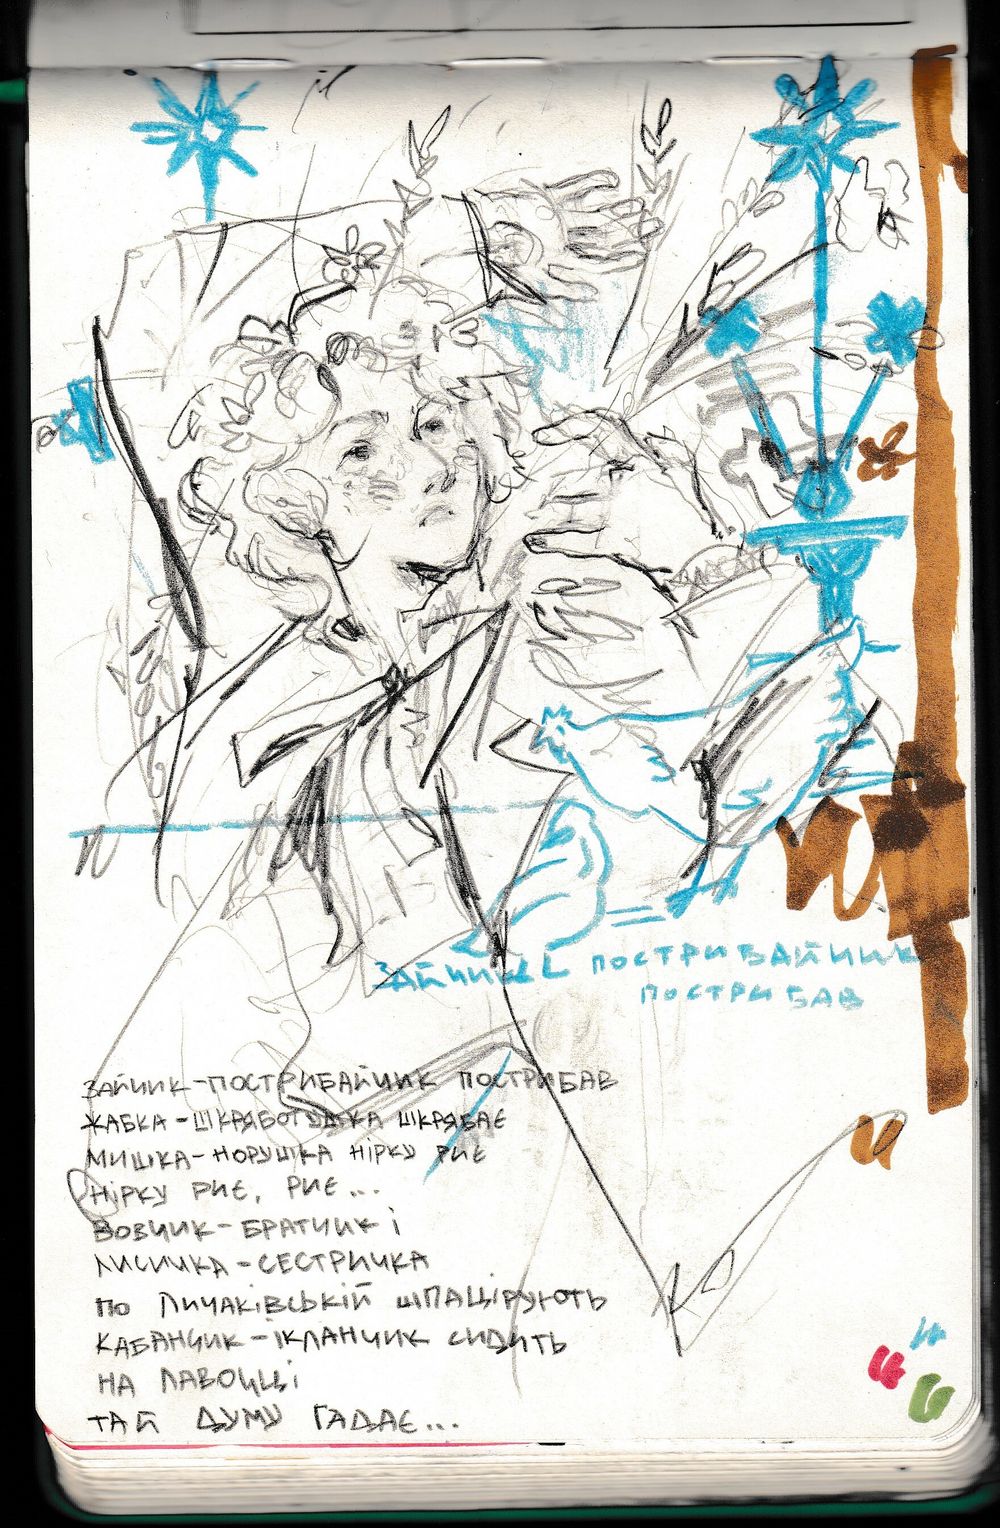 ЗАЙЧИК ПОСТРИБАЙЧИК
ПОСТРИБАВ
ЗАЙЧИК-ПОСТРИБАЙЧИК ПОСТРИБАВ
ЖАБКА-ШКРЯБОТУШКА ШКРЯБАЄ
МИШКА-НОРУШКА НІРКУ РИЄ
НІРКУ РИЄ, РИЄ...
ВОВЧИК-БРАТЧИК І
ЛИСИЧКА-СЕСТРИЧКА
ПО ЛИЧАКІВСЬКІЙ ШПАЦІРУЮТЬ
КАБАНЧИК-ІКЛАНЧИК СИДИТЬ
НА ЛАВОЧЦІ
ТАЙ ДУМУ ГАДАЄ...